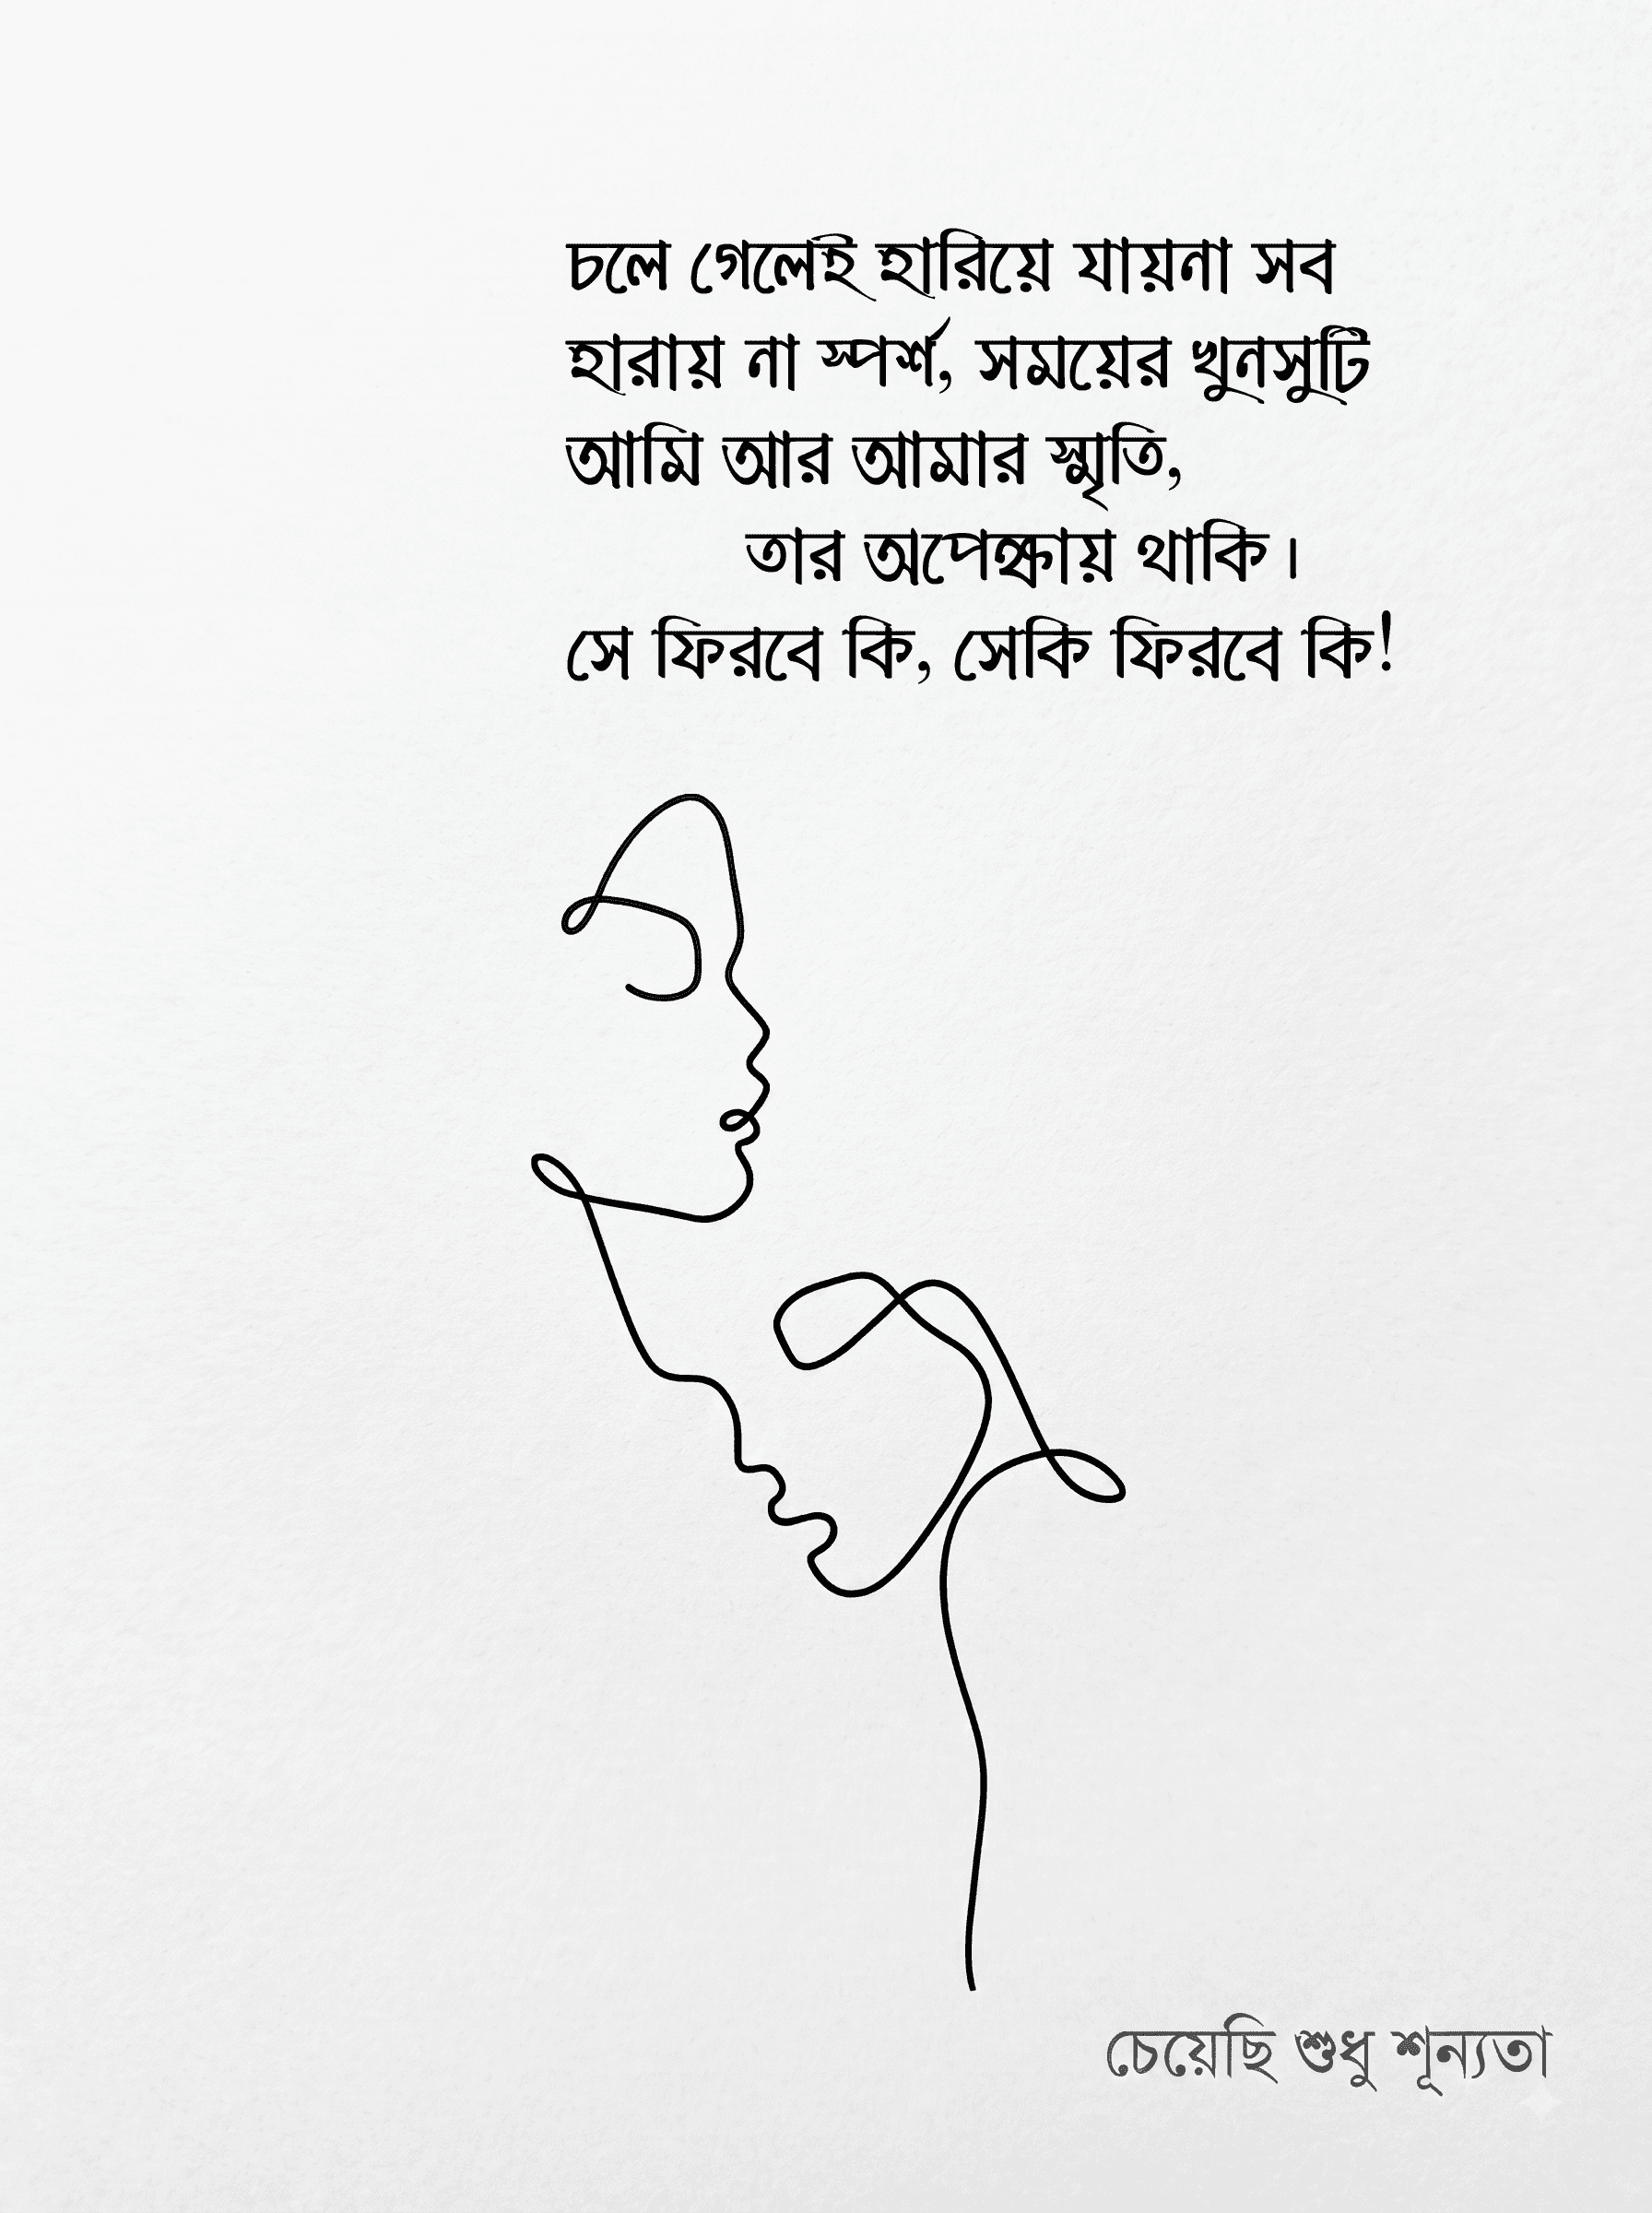 চলে গেলেই হারিয়ে যায়না সব
হারায় না স্পর্শ, সময়ের খুনসুটি
আমি আর আমার স্মৃতি,
তার অপেক্ষায় থাকি।
সে ফিরবে কি, সেকি ফিরবে কি!
চেয়েছি শুধু শূন্যতা